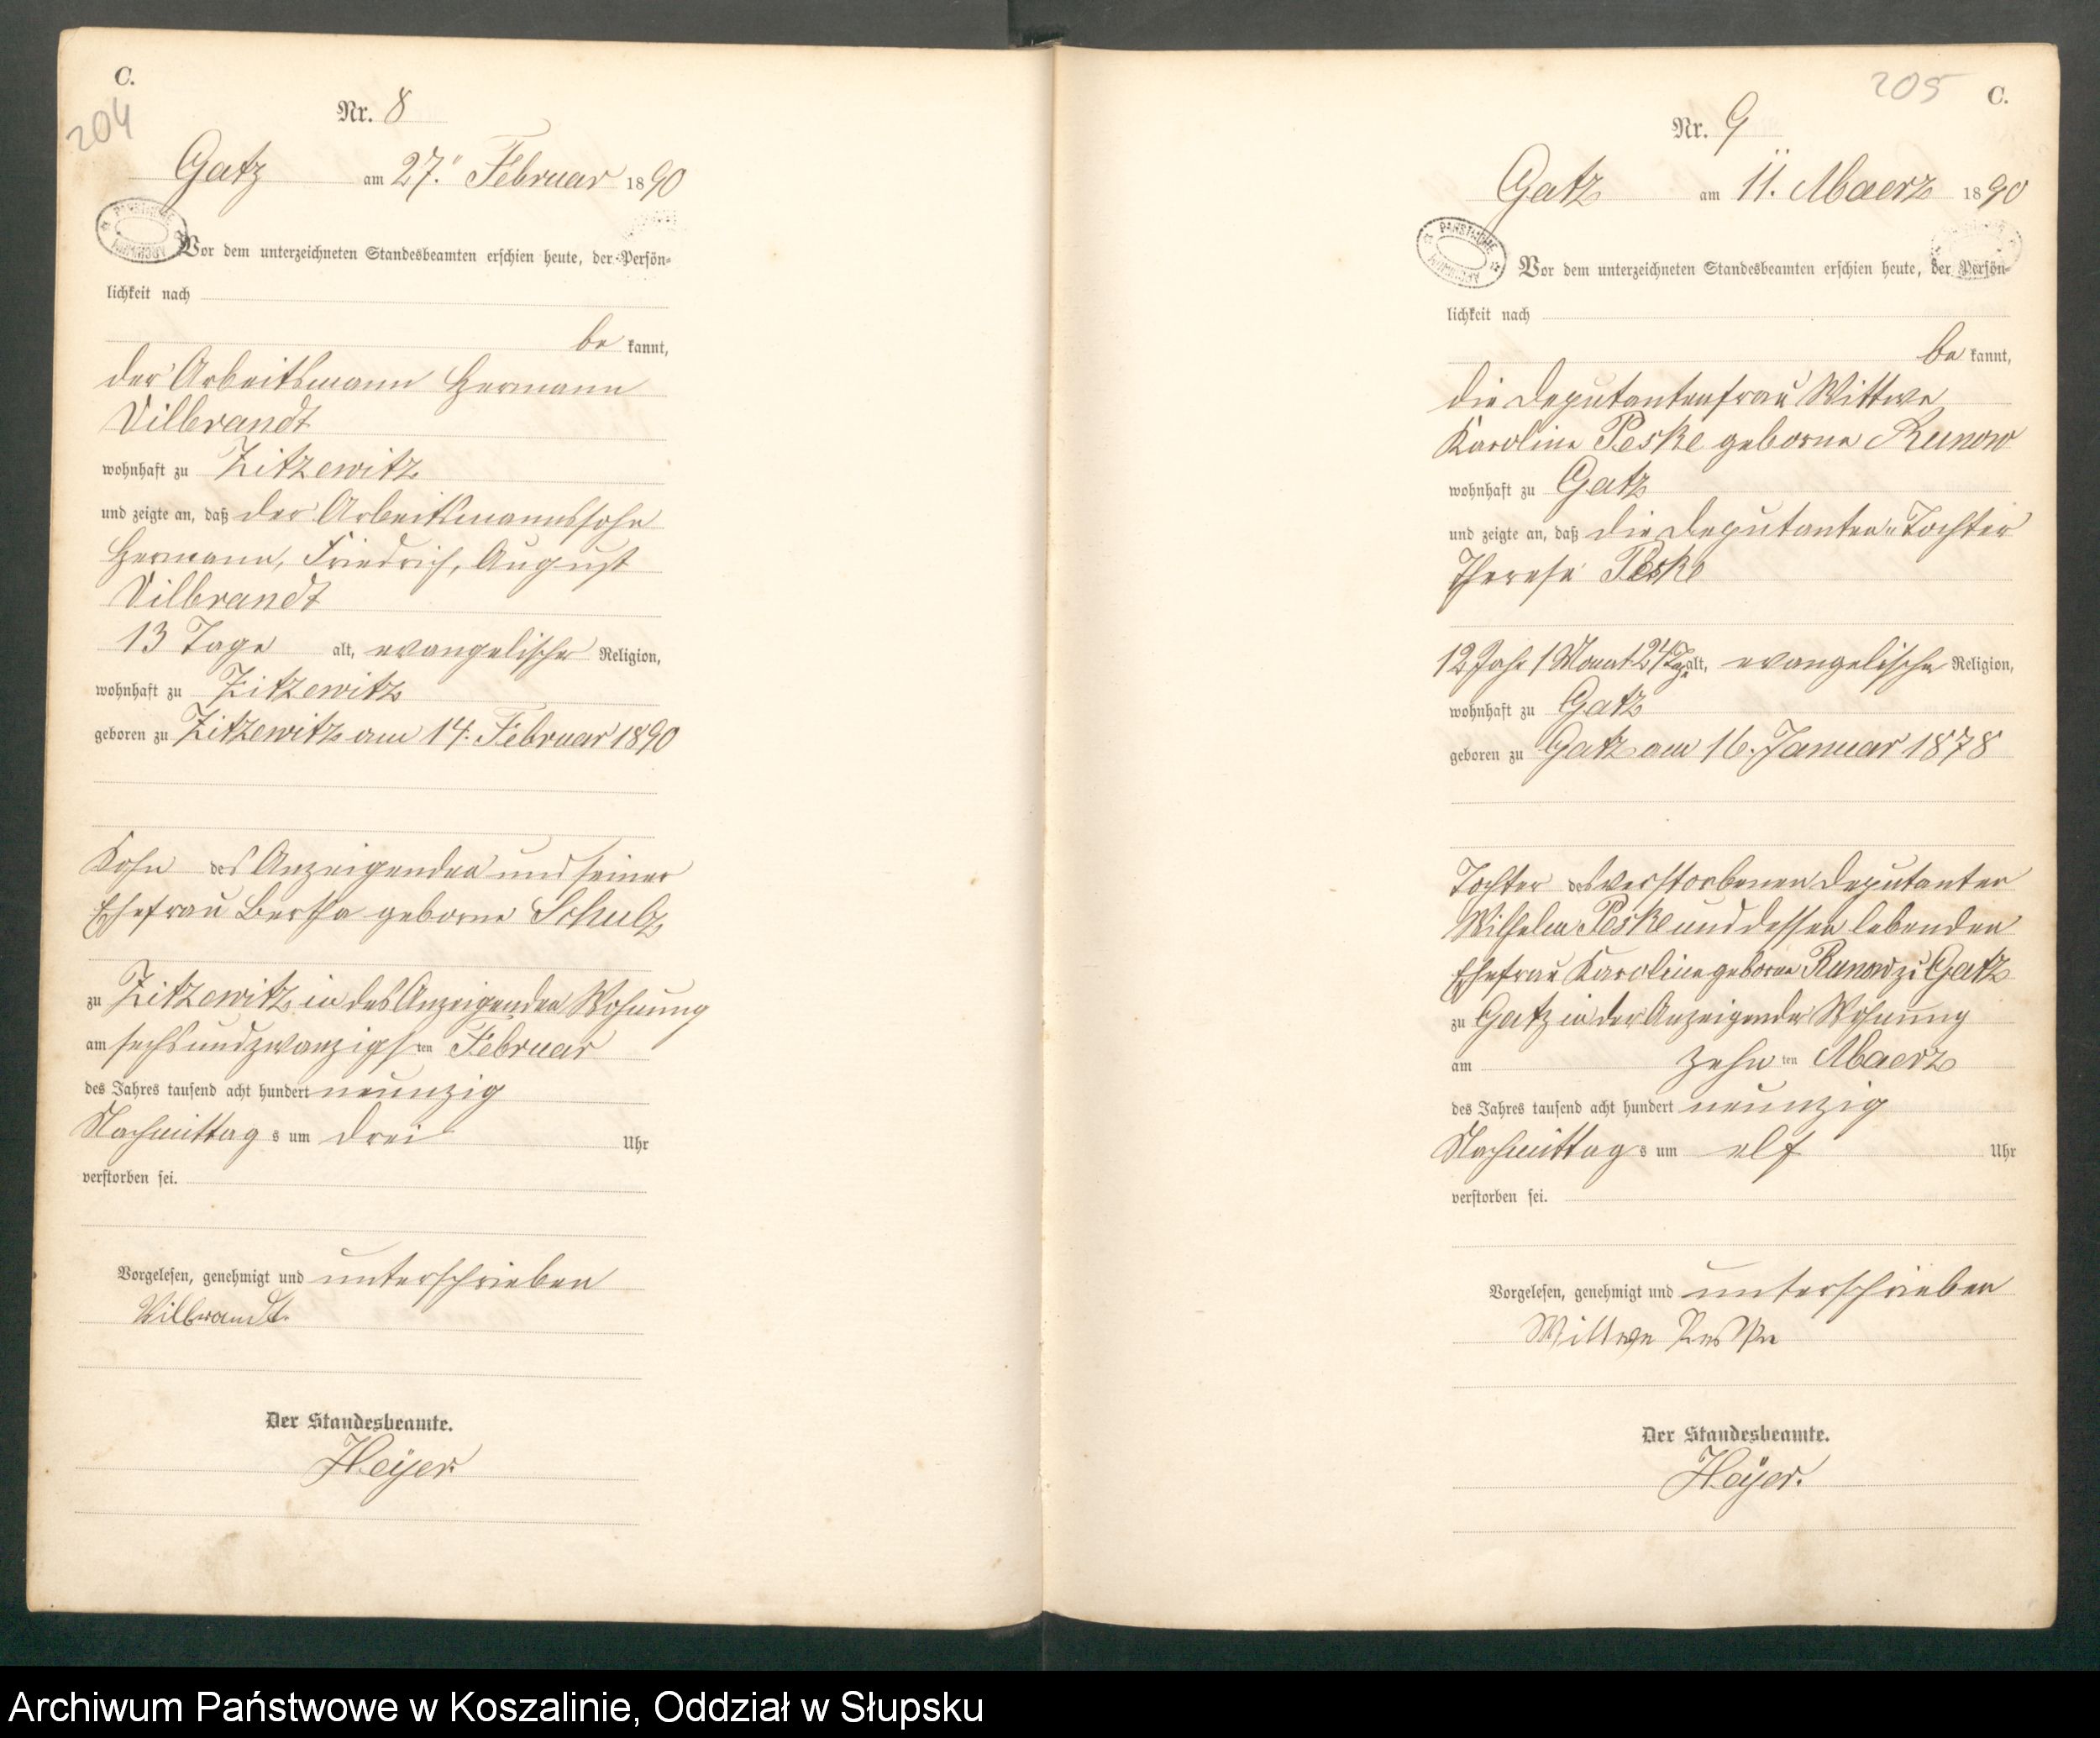 C.
204
Nr. 8
Gatz am 27ten Februar 1890
Vor dem unterzeichneten Standesbeamten erschien heute, der Persön-
lichkeit nach
be kannt,
der Arbeitsmann Hermann
Vilbrandt
wohnhaft zu Zitzewitz
und zeigte an, daß der Arbeitsmannssohn
Hermann, Friedrich, August
Vilbrandt
13 Tage alt, evangelischer Religion,
wohnhaft zu Zitzewitz
geboren zu Zitzewitz am 14. Februar 1890
Sohn des Anzeigenden und seiner
Ehefrau Bertha geborne Schulz
zu Zitzewitz in des Anzeigenden Wohnung
am sechsundzwanzigsten Februar
des Jahres tausend acht hundert neunzig
Nachmittag s um drei Uhr
verstorben sei.
Vorgelesen, genehmigt und unterschrieben
Vilbrandt.
Der Standesbeamte.
Heyer.
205
C.
Nr. 9
Gatz am 11. Maerz 1890
PAŃSTWOWE ARCHIWUM
Vor dem unterzeichneten Standesbeamten erschien heute, der Persön-
lichkeit nach
be kannt,
die Deputantenfrau Wittwe
Karoline Peske geborne Runow
wohnhaft zu Gatz
und zeigte an, daß die Deputanten-Tochter
Therese Peske
12 Jahr 1 Monat 24 Tage alt, evangelischer Religion,
wohnhaft zu Gatz
geboren zu Gatz am 16. Januar 1878
Tochter des verstorbenen Deputanten
Wilhelm Peske und dessen lebenden
Ehefrau Karoline geborne Runow zu Gatz
zu Gatz in der Anzeigenden Wohnung
am zehn ten Maerz
des Jahres tausend acht hundert neunzig
Nachmittag s um elf Uhr
verstorben sei.
Vorgelesen, genehmigt und unterschrieben
Wittwe Peske
Der Standesbeamte.
Heyer.
Archiwum Państwowe w Koszalinie, Oddział w Słupsku